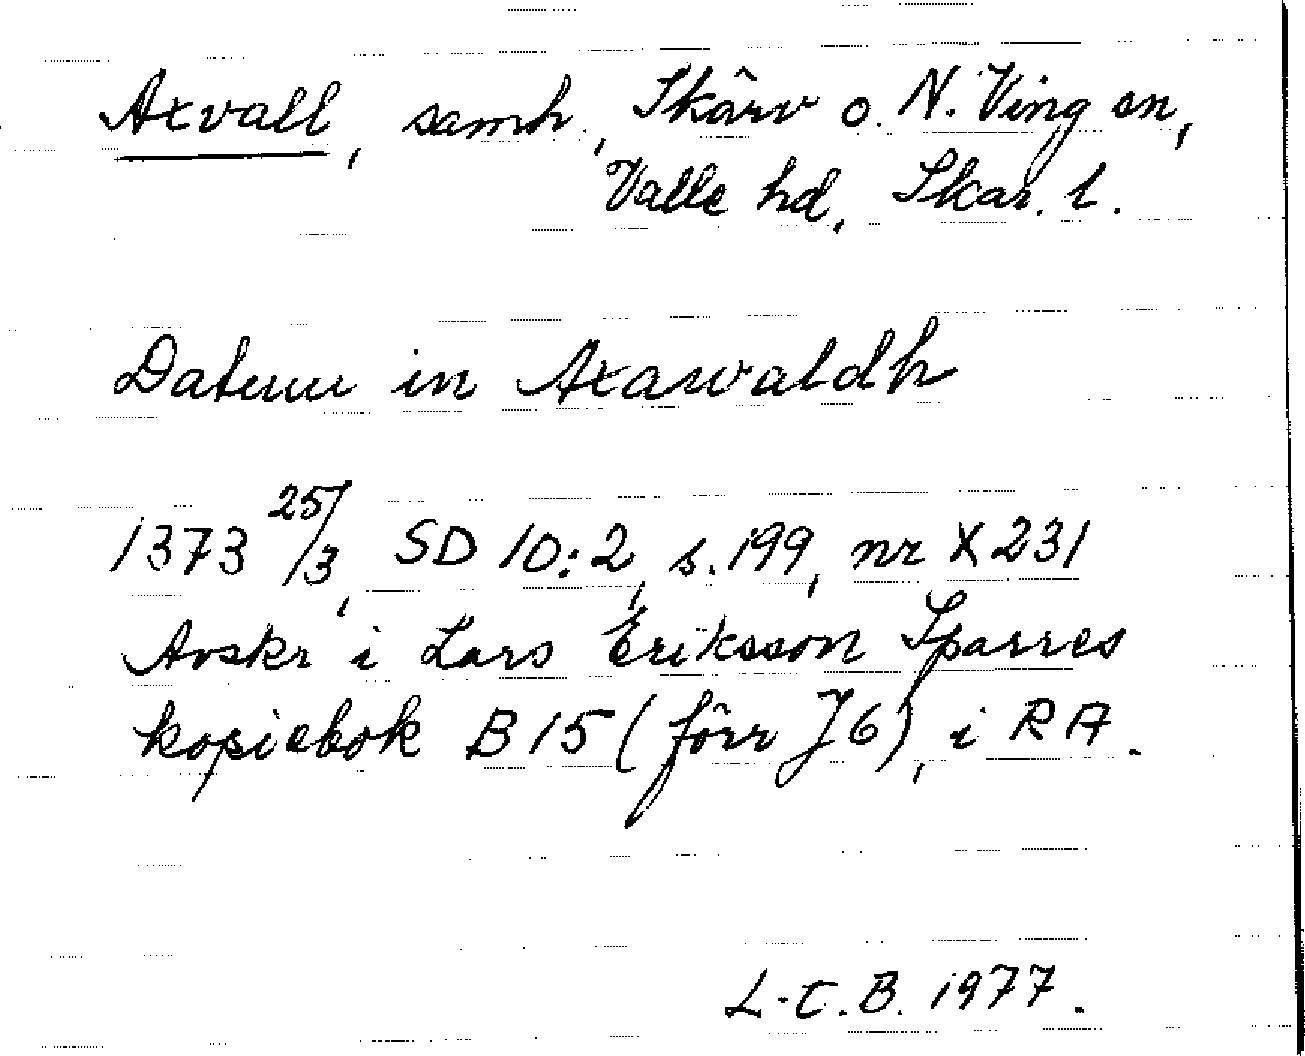 Axvall, samh., Skärv o. N. Ving sn,
Valle hd, Skar. l.
Datum in Axawaldh
1373 25/3, SD 10:2, s. 199, nr X 231
Avskr i Lars Eriksson Sparres
kopiebok B 15 (förr J 6), i RA.
L-C. B. 1977.